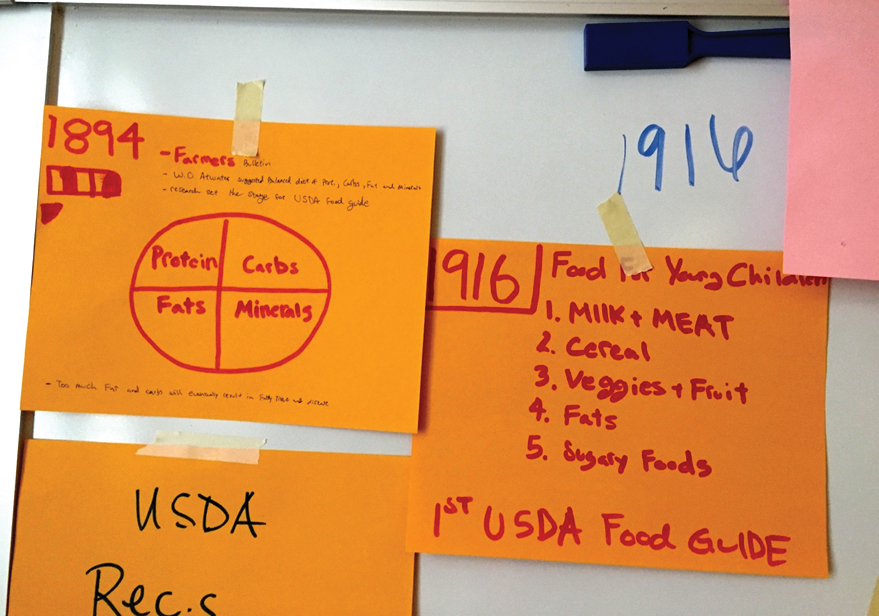 1894
- Farmers Bulletin
- W.O Atwater suggested Balanced diet of Prot., Carbs, Fat and Minerals
- research set the stage for USDA Food guide
Protein Carbs
Fats Minerals
- Too much Fat and carbs will eventually result in Fatty Diet and disease
1916
1916
Food for Young Children
1. MILK + MEAT
2. Cereal
3. Veggies + Fruit
4. Fats
5. Sugary Foods
1ST USDA Food GUIDE
USDA
Rec.s